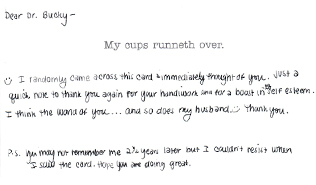 Dear Dr. Bucky –
My cups runneth over.
☺ I randomly came across this card & immediately thought of you. Just a
quick note to thank you again for your handiwork and for a boost in my self esteem.
I think the world of you... and so does my husband ☺ Thank you.
P.s. you may not remember me 2½ years later but I couldn't resist when
I saw the card. Hope you are doing great.